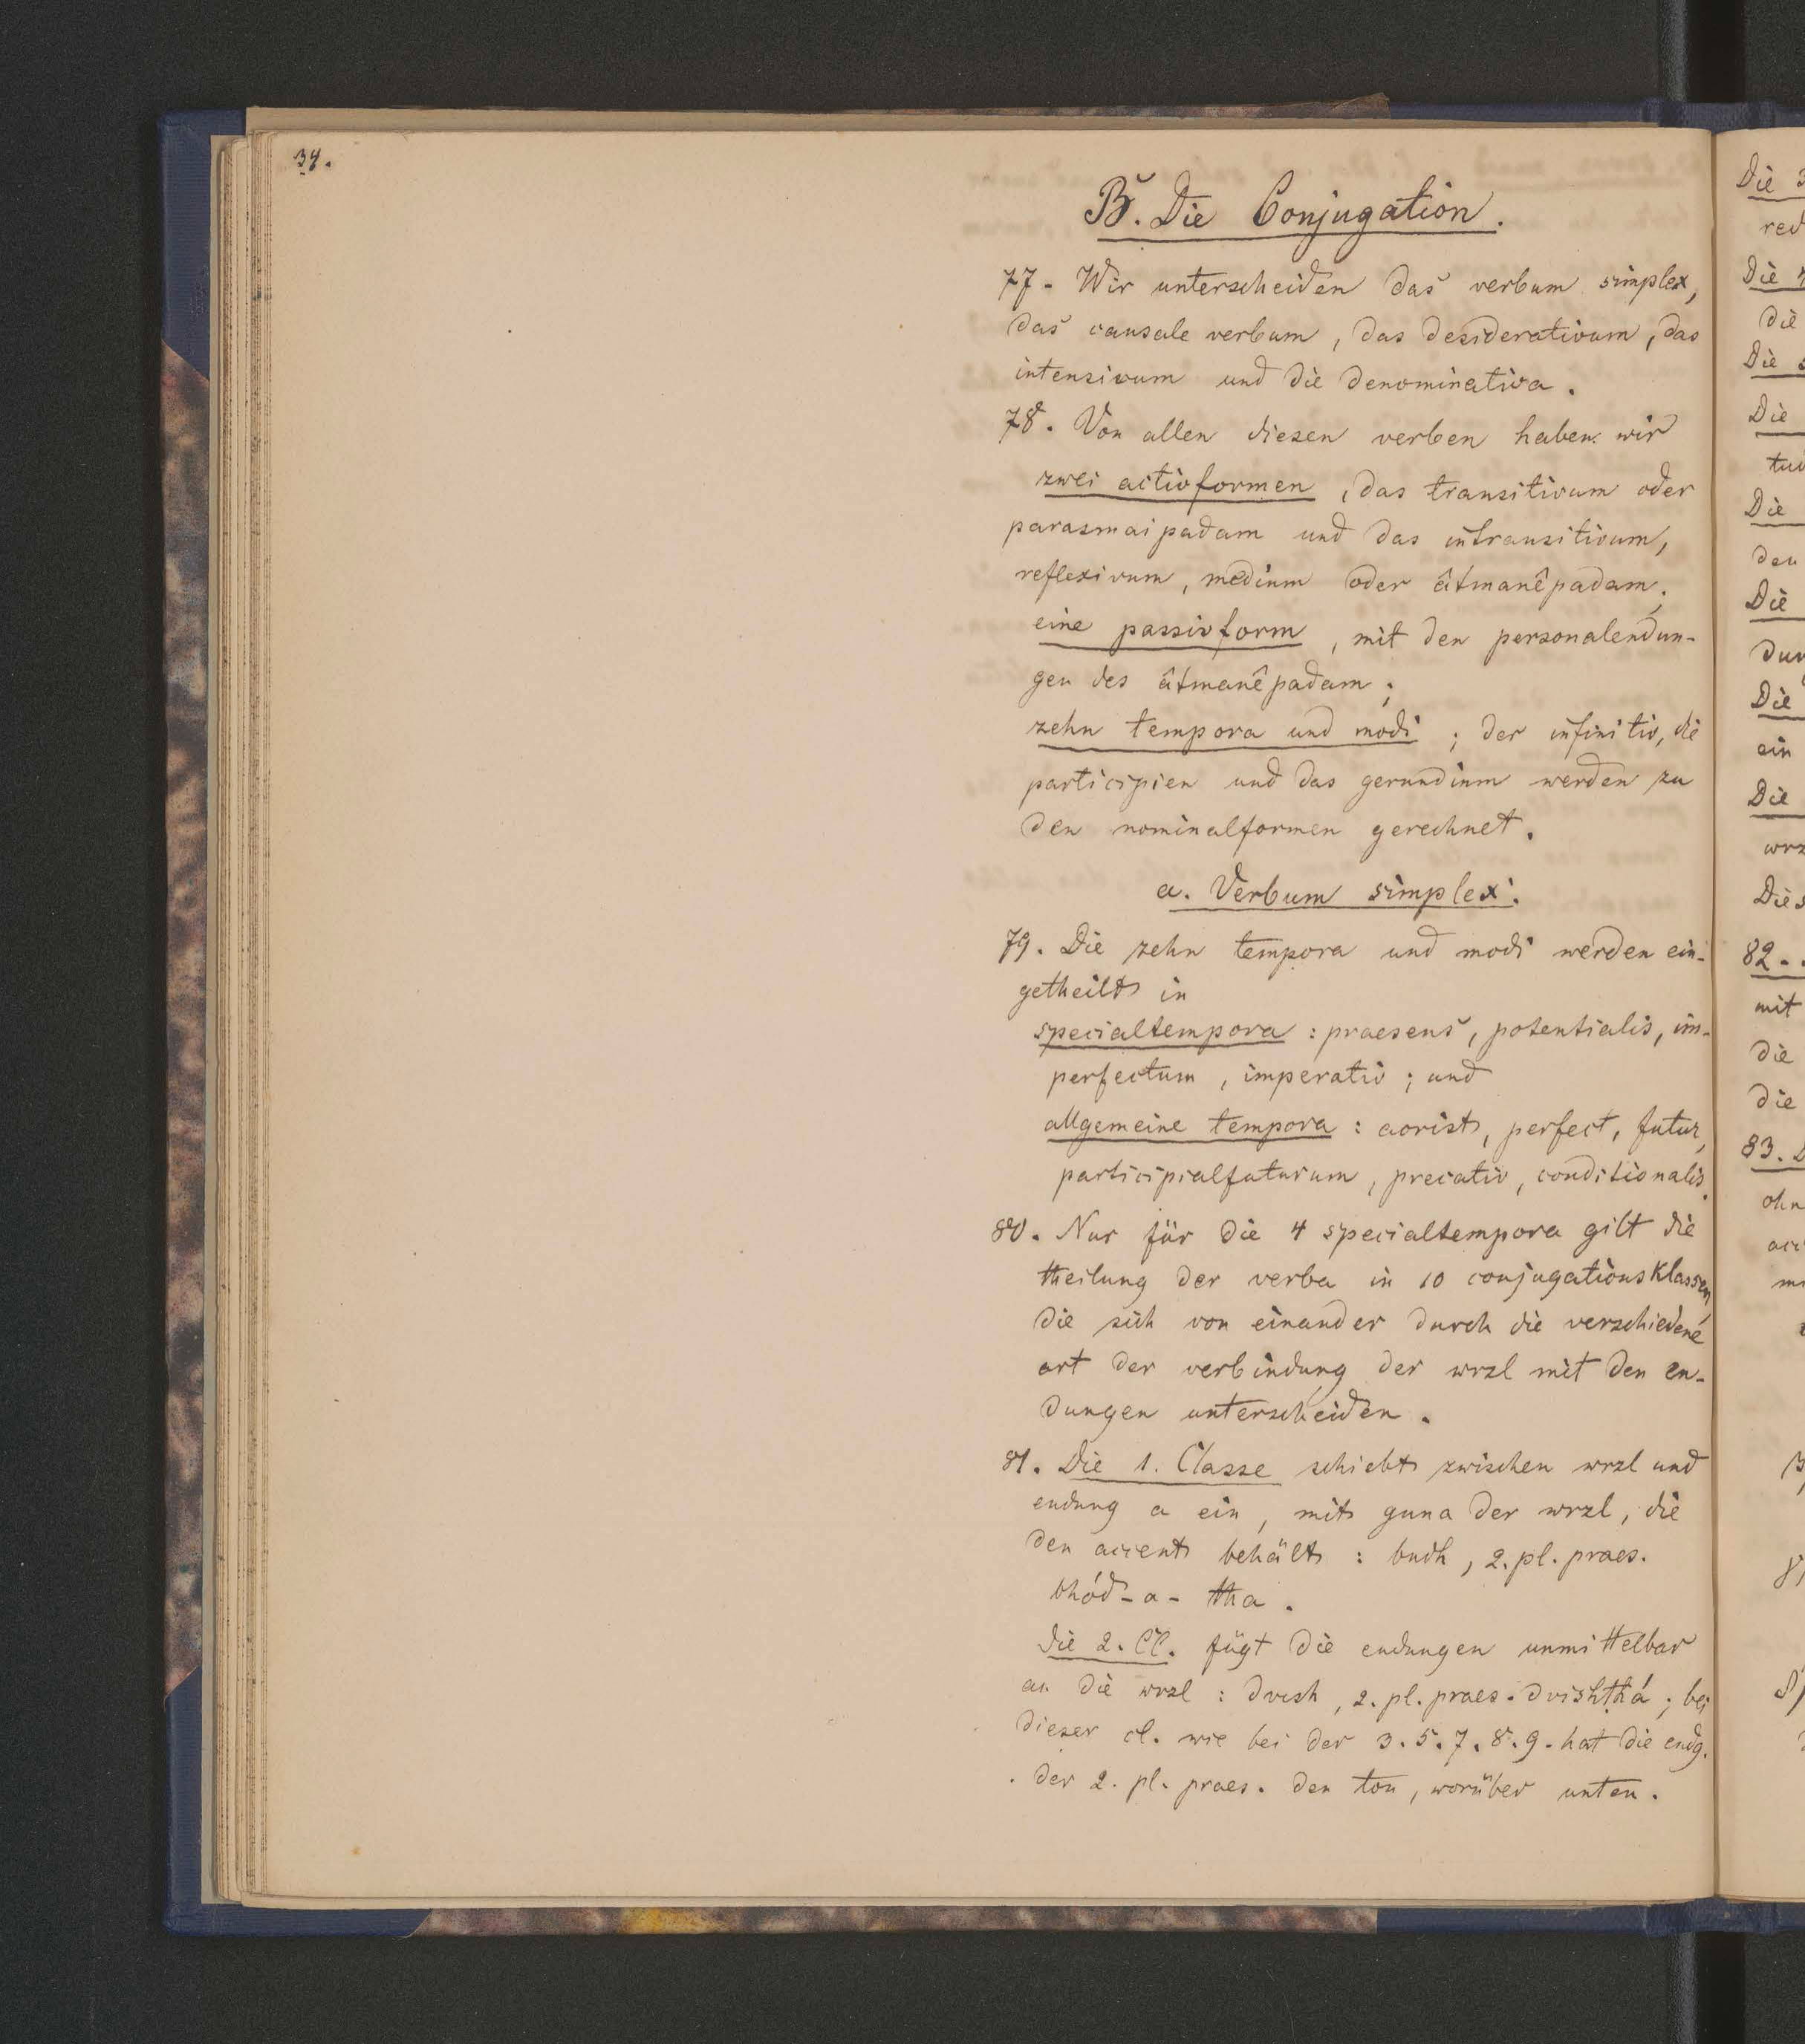 34.
B. Die Conjugation.
77. Wir unterscheiden das verbum simplex,
das causale verbum, das desiderativum, das
intensivum und die denominativa.
78. Von allen diesen verben haben wir
zwei activformen, das transitivum oder
parasmaipadam und das intransitivum,
reflexivum, medium oder âtmanêpadam;
eine passivform, mit den personalendun-
gen des âtmanêpadam;
zehn tempora und modi; der infinitiv, die
participien und das gerundium werden zu
den nominalformen gerechnet.
a. Verbum simplex.
79. Die zehn tempora und modi werden ein-
getheilt in
specialtempora: praesens, potentialis, im-
perfectum, imperativ; und
allgemeine tempora: aorist, perfect, futur,
participialfuturum, precativ, conditionalis.
80. Nur für die 4 specialtempora gilt die
theilung der verba in 10 conjugationsklassen,
die sich von einander durch die verschiedene
art der verbindung der wrzl mit den en-
dungen unterscheiden.
81. Die 1. Classe schiebt zwischen wrzl und
endung a ein, mit guna der wrzl, die
den accent behält: budh, 2. pl. praes.
bhód-a-tha.
die 2. Cl. fügt die endungen unmittelbar
an die wrzl: dvish, 2. pl. praes. dvishṭhá; bei
dieser cl. wie bei der 3. 5. 7. 8. 9. hat die endg.
der 2. pl. praes. den ton, worüber unten.
Die
red
Die
die
Die
Die
tud
Die
den
Die
Die
ein
Die
wrz
Dies
82.
mit
die
die
83.
ohn